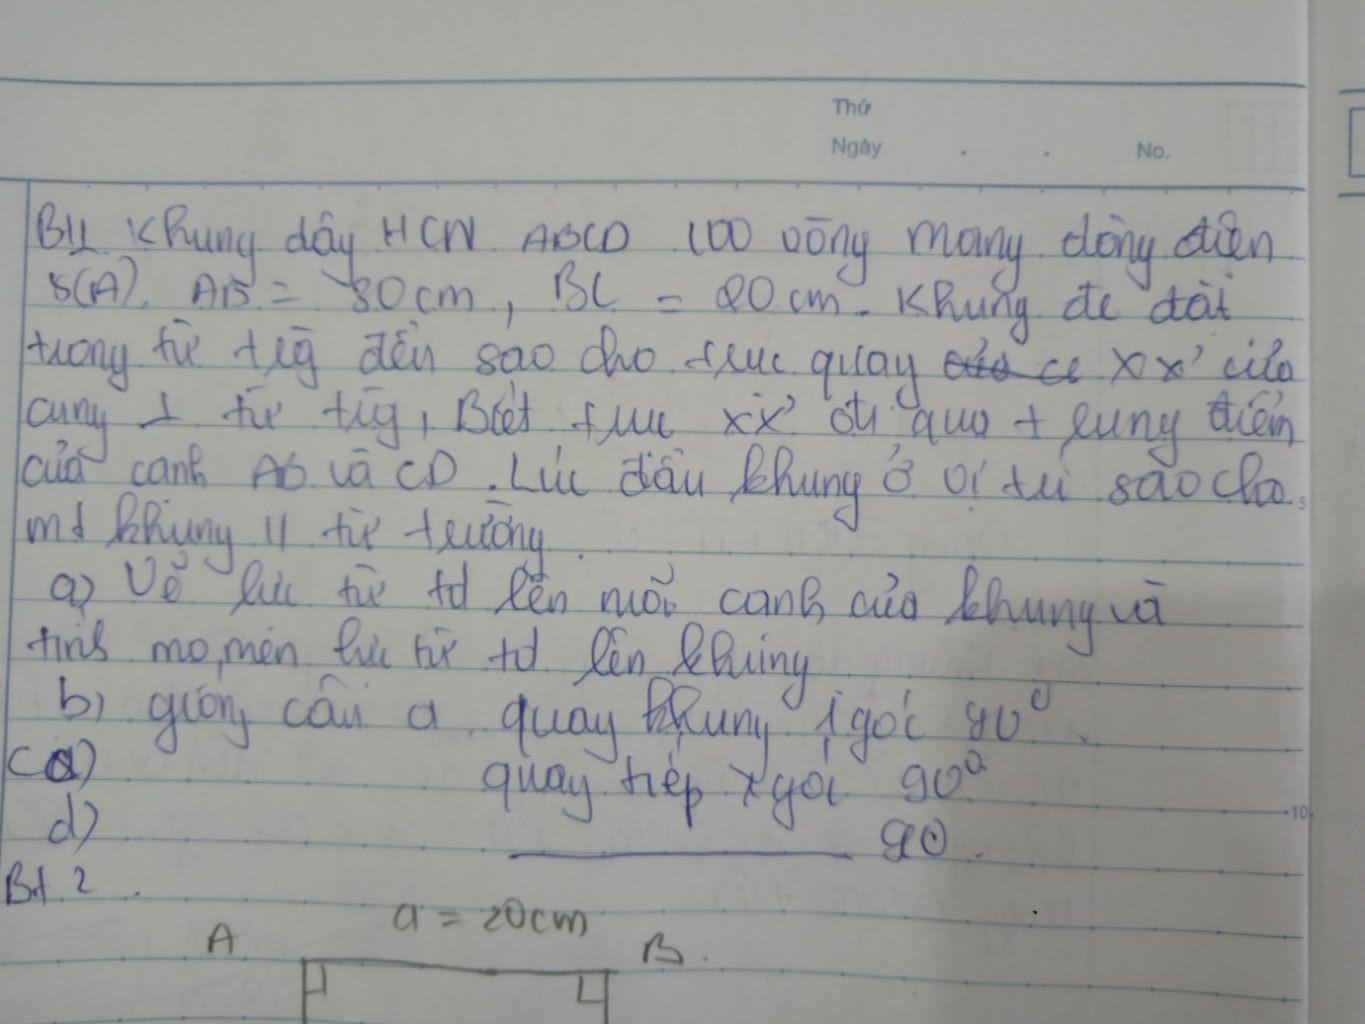 Thứ
Ngày . . No.
Bt1 Khung dây HCN ABCD 100 vòng mang dòng điện
5(A). AB = 30cm, BC = 20cm. Khung đc đặt
trong từ trg đều sao cho trục quay xx' của
cung ⊥ từ trg, Biết trục xx' đi qua trung điểm
của canh AB và CD. Lúc đầu khung ở vị trí sao cho
mf khung // từ trường.
a) Vẽ lực từ td lên mỗi canh của khung và
tính mo,men lực từ td lên khung
b) giống câu a quay khung 1 góc 90⁰.
c) quay tiếp 1 góc 90⁰
d) ________ 90.
10
Bt 2.
a = 20cm
A B.